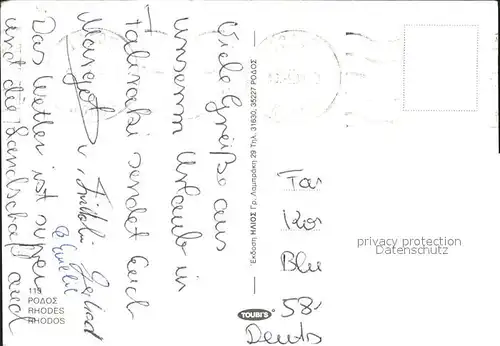 Viele Grüße aus
unserem Urlaub in
Faliraki sendet Euch
Margot u.
Das Wetter ist super
und die Landschaft auch
119
ΡΟΔΟΣ
RHODES
RHODOS
Έκδοση ΗΛΙΟΣ Γρ. Λαμπράκη 29 Τηλ. 31630, 35227 ΡΟΔΟΣ
TOUBI'S
Fa
Blu
58
Deuts
privacy protection
Datenschutz